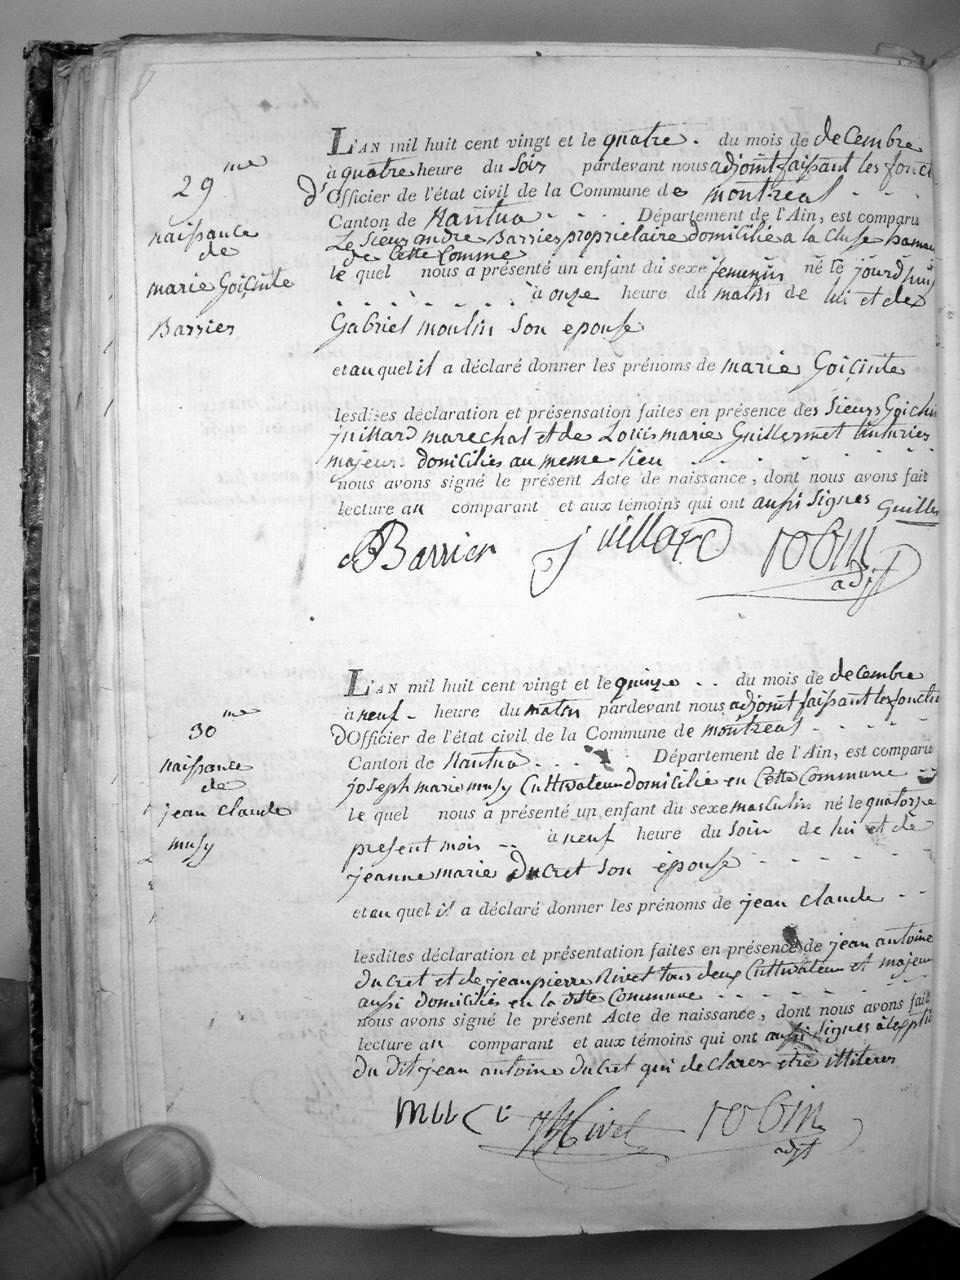 29me
naissance
de
marie Goiçinte
Barrier
L'AN mil huit cent vingt et le quatre. du mois de decembre
à quatre heure du soir pardevant nous adjoint faisant les fonct
d'Officier de l'état civil de la Commune de montreal
Canton de Nantua Département de l'Ain, est comparu
Le sieur andré Barrier proprietaire domicilié a la Cluse hamau
de cette Comme
le quel nous a présenté un enfant du sexe femenin né le jourd'hui
à onze heure du matin de lui et de
Gabriel moulin son epouse
et au quel il a déclaré donner les prénoms de marie Goiçinte
lesdites déclaration et présensation faites en présence des sieurs Goichin
juillard marechal et de Louis marie Guillermet tinturier
majeurs domiciliés au meme lieu
nous avons signé le présent Acte de naissance, dont nous avons fait
lecture au comparant et aux témoins qui ont aussi signes Guiller
Barrier juillard robin
adjt
30me
naissance
de
jean claude
musy
L'AN mil huit cent vingt et le quinze du mois de decembre
à neuf heure du matin pardevant nous adjoint faisant les fonctio
d'Officier de l'état civil de la Commune de montreal
Canton de Nantua Département de l'Ain, est comparu
joseph marie musy Cultivateur domicilié en cette Commune
le quel nous a présenté un enfant du sexe masculin né le quatorze
present mois à neuf heure du soir de lui et de
jeanne marie Ducret son épouse
et au quel il a déclaré donner les prénoms de jean claude
lesdites déclaration et présentation faites en présence de jean antoine
ducret et de jean pierre Rivet tous deux Cultivateur et majeur
aussi domiciliés en la ditte Commune
nous avons signé le présent Acte de naissance, dont nous avons fait
lecture au comparant et aux témoins qui ont aussi signes à l'exptio
du dit jean antoine ducret qui declarer etre illiteres
Rivet robin
adjt